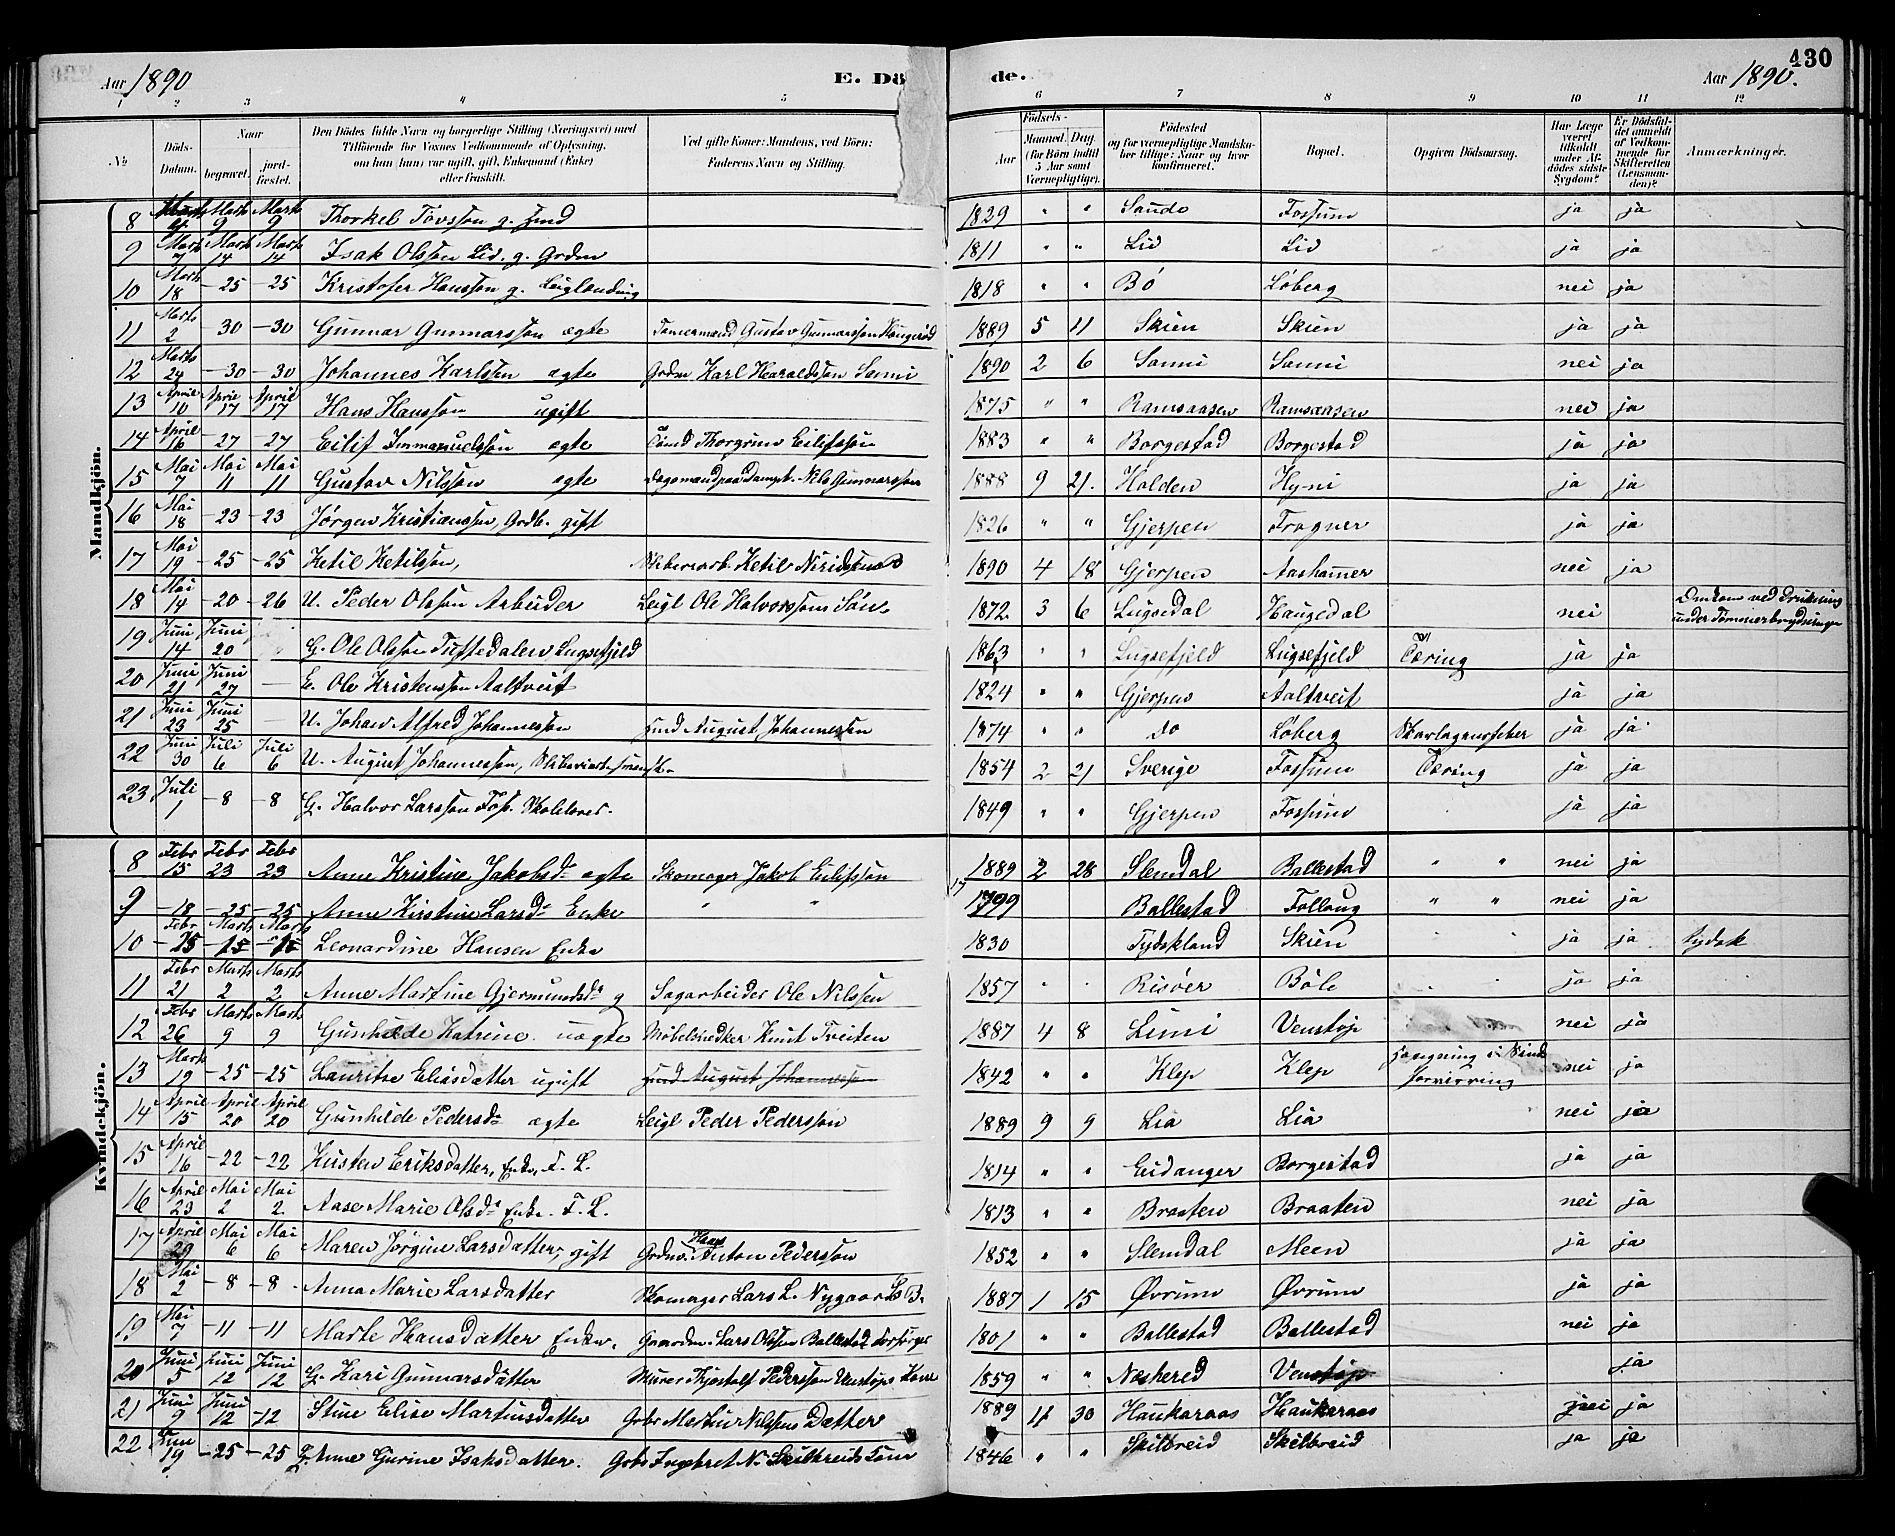 430
Aar 1890 E. Dö de. Aar 1890.
1 2 3 4 5 6 7 8 9 10 11 12
No Döds-Datum. Naar begravet. jordfæstet. Den Dödes fulde Navn og borgerlige Stilling (Næringsvei) med Tilföiende for Voxnes Vedkommende af Oplysning, om han (hun) var ugift, gift, Enkemand (Enke) eller fraskilt. Ved gifte Koner: Mandens, ved Börn: Faderens Navn og Stilling. Födsels- Aar Maaned. Dag. (for Börn indtil 5 Aar samt Værnepligtige). Födested og for værnepligtige Mandskaber tillige: Naar og hvor konfirmeret. Bopæl. Opgiven Dödsaarsag. Har Læge været tilkaldt under Afdödes sidste Sygdom? Er Dödsfaldet anmeldt af Vedkommende for Skifteretten (Lensmanden)? Anmærkninger.
Mandkjön.
8 Marts 4 Marts 9 Marts 9 Thorkel Tovssøn g. 1829 " " Saude Fossum ja ja
9 Marts 7 Marts 14 Marts 14 Isak Olssøn Lid. g. Grdm 1811 " " Lid Lid ja ja
10 Marts 18 -25 -25 Kristofer Hanssøn g. 1818 " " Bø Løberg nei ja
11 Marts 2 -30 -30 Gunnar Gunnarssøn ægte Tømermand Gustav Gunnarssøn 1889 5 11 Skien Skien ja ja
12 Marts 24 -30 -30 Johannes Karlssøn ægte Grdm Karl Haraldssøn Sanni 1890 2 6 Sanni Sanni nei ja
13 April 10 April 17 April 17 Hans Hanssøn ugift 1875 " " Ramsaasen Ramsaasen nei ja
14 April 16 -27 -27 Eilif Immanuelssøn ægte Thorgrim Eilifssøn 1883 " " Borgestad Borgestad ja ja
15 Mai 7 Mai 11 Mai 11 Gustav Nilssøn ægte Nils Gunnarssøn 1888 9 21. Holden Hyni ja ja
16 Mai 18 -23 -23 Jørgen Kristianssøn, Grdb. gift 1826 " " Gjerpen Frogner ja ja
17 Mai 19 -25 -25 Ketil Ketilssøn, Ketil 1890 4 18 Gjerpen Aashamer nei ja
18 Mai 14 -20 -26 U. Peder Olssøn Arbeider Leigl Ole Halvorssøns Søn 1872 3 6 Lugsedal Haugedal nei Omkom ved Drukning under Tømmerbrydningen
19 Juni 14 Juni 20 G. Ole Olssøn Tuftedalen, Lugsefjeld 1863 " " Lugsefjeld Lugsefjeld Tæring ja ja
20 Juni 21 Juni 27 — E. Ole Kristenssøn Aaltveit 1824 " " Gjerpen Aaltveit ja ja
21 Juni 23 Juni 25 — U. Johan Alfred Johannessøn August Johannessøn 1874 " " do Løberg Skarlagensfeber ja ja
22 Juni 30 Juli 6 Juli 6 U. August Johannessøn, 1854 2 21 Sverige Fossum Tæring ja ja
23 Juli 1 -8 -8 G. Halvor Larssøn Fos. 1849 " " Gjerpen Fossum ja ja
Kvindekjön.
8 Febr 15 Febr 23 Febr 23 Anne Kristine Jakobsd. ægte Skomager Jakob Eilifssøn 1889 2 28 Slemdal Ballestad " " nei ja
9 -18 -25 -25 Anne Kirstine Larsd. Enke " " 1799 Ballestad Follaug " " nei ja
10 Febr Marts Marts Leonardine Hansen Enke 1830 Tydskland Skien " " ja ja tydsk
11 Febr 21 Marts 2 Marts 2 Anne Martine Gjermundsd. g Sagarbeider Ole Nilssen 1857 " " Risøer Bøle " " ja ja
12 Febr 26 Marts 9 Marts 9 Gunhilde Katrine uægte Møbelsnedker Knut Tveiten 1887 4 8 Limi Venstøp nei ja
13 Marts 19 -25 -25 Lauritse Eliasdatter ugift August Johannessøn 1842 " " Klep Klep nei ja
14 April 15 April 20 April 20 Gunhilde Pedersd. ægte Leigl Peder Pederssøn 1889 9 9 Lia Lia nei ja
15 April 16 -22 -22 Kisten Eriksdatter, Enke, F. L. 1814 " " Eidanger Borgestad ja ja
16 April 23 Mai 2 Mai 2 Aase Marie Olsd. Enke. F. L. 1813 " " Braaten Braaten nei ja
17 April 29 Mai 6 Mai 6 Maren Jørgine Larsdatter, gift Grdm. Hans Anton Pederssøn 1852 " " Slemdal Meen ja ja
18 Mai 2 -8 -8 Anna Marie Larsdatter Skomager Lars L. Nygaard 1887 1 15 Øvrum Øvrum ja ja
19 Mai 7 -11 -11 Marte Hansdatter Enke. Gaardm. Lars Olssøn Ballestad 1801 " " Ballestad Ballestad nei ja
20 Juni 5 Juni 12 Juni 12 G. Kari Gunnarsdatter Murer Kjøstolf Pederssøn Venstøps Kone 1859 " " Næsherød Venstøp ja
21 Juni 9 Juni 12 -12 Stine Elise Martinsdatter Gbr Martin Nilssens Datter 1889 11 30 Haukeraas Haukeraas nei ja
22 Juni 19 -25 -25 G. Anne Gurine Isaksdatter. Gbr Ingebret N. Skilbreids Kone 1846 " " Skilbreid Skilbreid ja ja